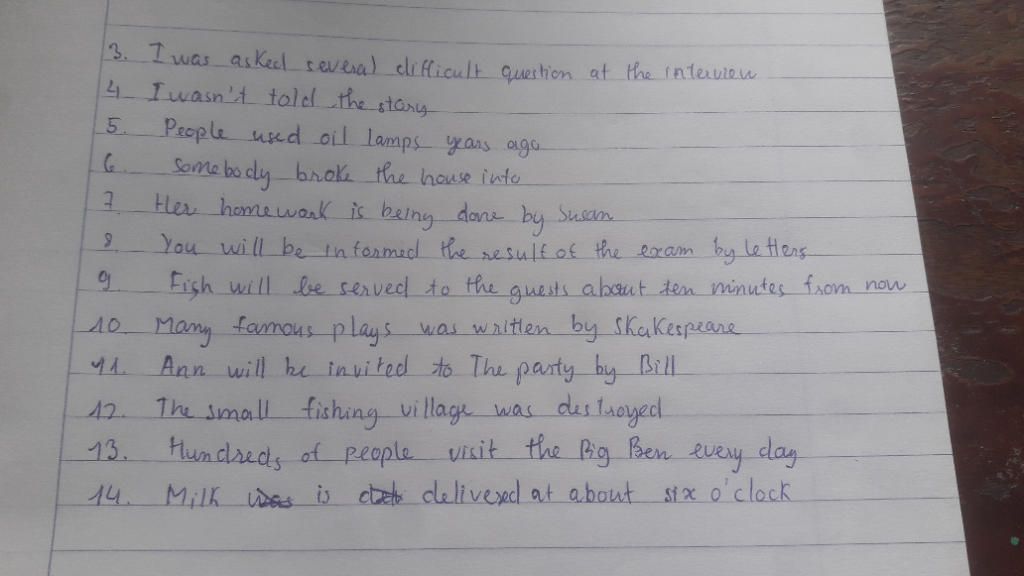 3. I was asked several difficult question at the interview
4 I wasn't told the story
5. People used oil lamps years ago
6. Somebody broke the house into
7 Her homework is being done by Susan
8. You will be informed the result of the exam by letters
9. Fish will be served to the guests about ten minutes from now
10. Many famous plays was written by Skakespeare
11. Ann will be invited to The party by Bill
12. The small fishing village was destroyed
13. Hundreds of people visit the Big Ben every day
14. Milk is delivered at about six o'clock